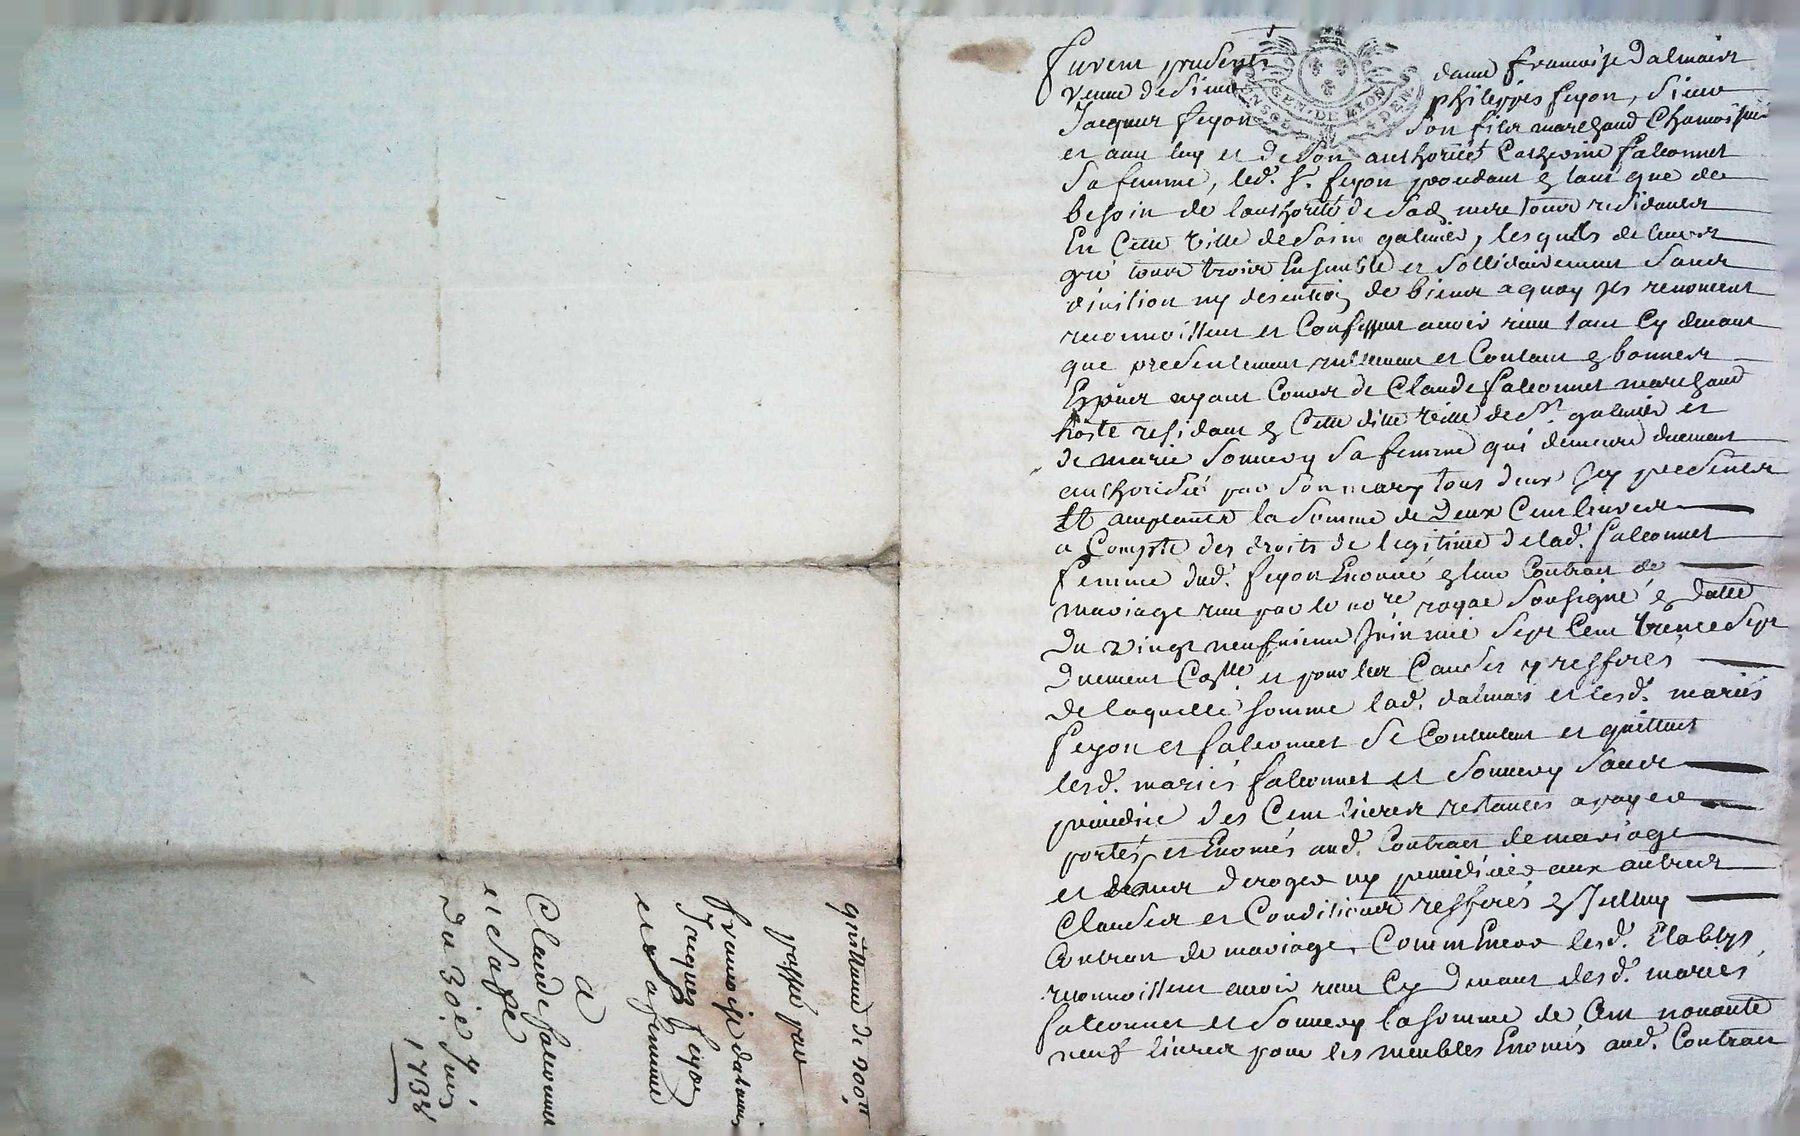 furent presents dame françoise dalmais
veuve de Sieur philippes feyon, Sieur
Jacques feyon son fils marchand Chamoisieur
GEN. DE LYON
et avec luy et de son authorité Catherine faleonnet
Sa femme, led. Sr. feyon procedant en tant que de
besoin de l'authorité de Sad. mere tous residants
En Cette Ville de Saint galmier, lesquels de leur
gré tous trois Ensemble et Sollidairement Sans
division ny discution de biens a quoy ils renoncent
reconnoissent et Confessent avoir receu tant Cy devant
que presentement reellement et Contant en bonnes
Especes ayant Cours de Claude faleonnet marchand
hoste residant en Cette ditte Ville de St galmier et
de marie Sonnery Sa femme qui demeure duement
authorisée par Son mary tous deux Icy presents
Et acceptants la Somme de Deux Cent livres
a Compte des droits de legitime de lad. faleonnet
femme dud. feyon Enoncé en leur Contrat de
mariage receu par le nore royal Soussigné en datte
Du vingt neufvieme Juin mil Sept Cent trente Sept
Duement Collé et pour les Causes y refferés
de laquelle Somme lad. dalmais et lesd. mariés
feyon et faleonnet Se Contentent et quittent
lesd. mariés faleonnet et Sonnery Sans
prejudice des Cent livres restantes a payer
portés et Enoncés aud. Contrat de mariage
et sans deroger ny prejudicier aux autres
Clauses et Conditions refferés en Iceluy
Contrat de mariage, Comm'Encor lesd. Etablys
reconnoissent avoir receu Cy Devant desd. mariés
faleonnet et Sonnery la Somme de Cent nonante
neuf livres pour les meubles Enoncés aud. Contrat
quittance de 200ll
passé par
françoise dalmais
Jacques feyon
et sa femme
a
Claude faleonnet
et Sa fe
Du 30e Juin
1738